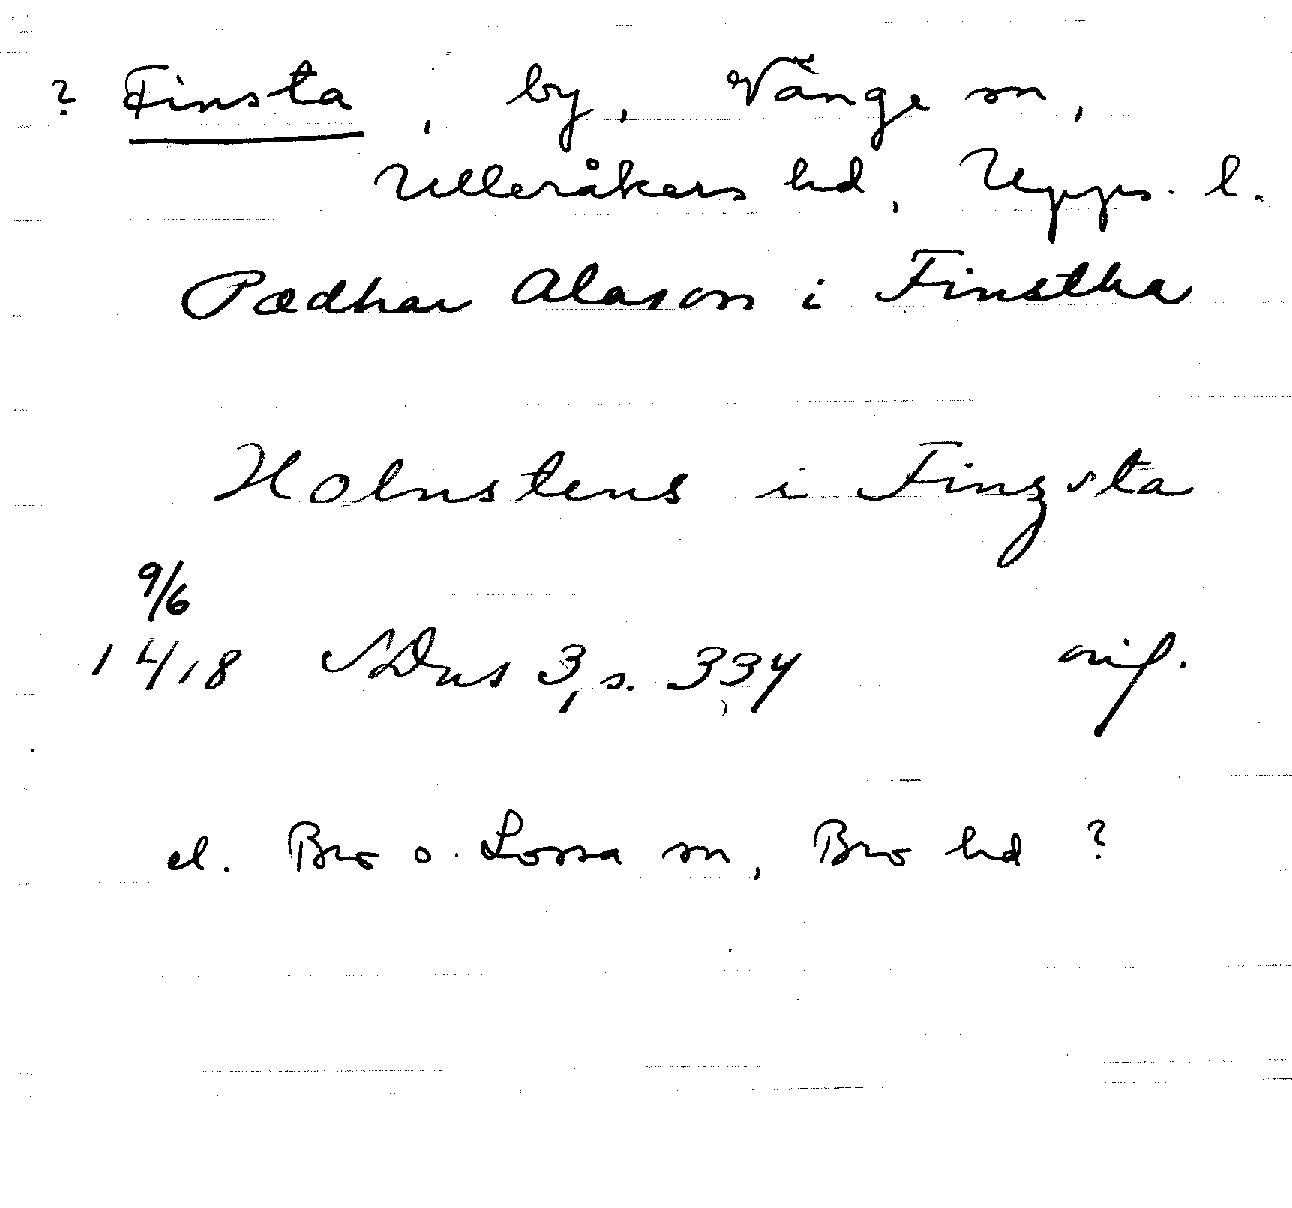 ? Finsta, by, Vänge sn,
Ulleråkers hd, Upps. l.
Pædhar Alason i Finstha
Holmstens i Fingsta
9/6
1418 SDns 3, s. 334 orig.
el. Bro o. Lossa sn, Bro hd ?